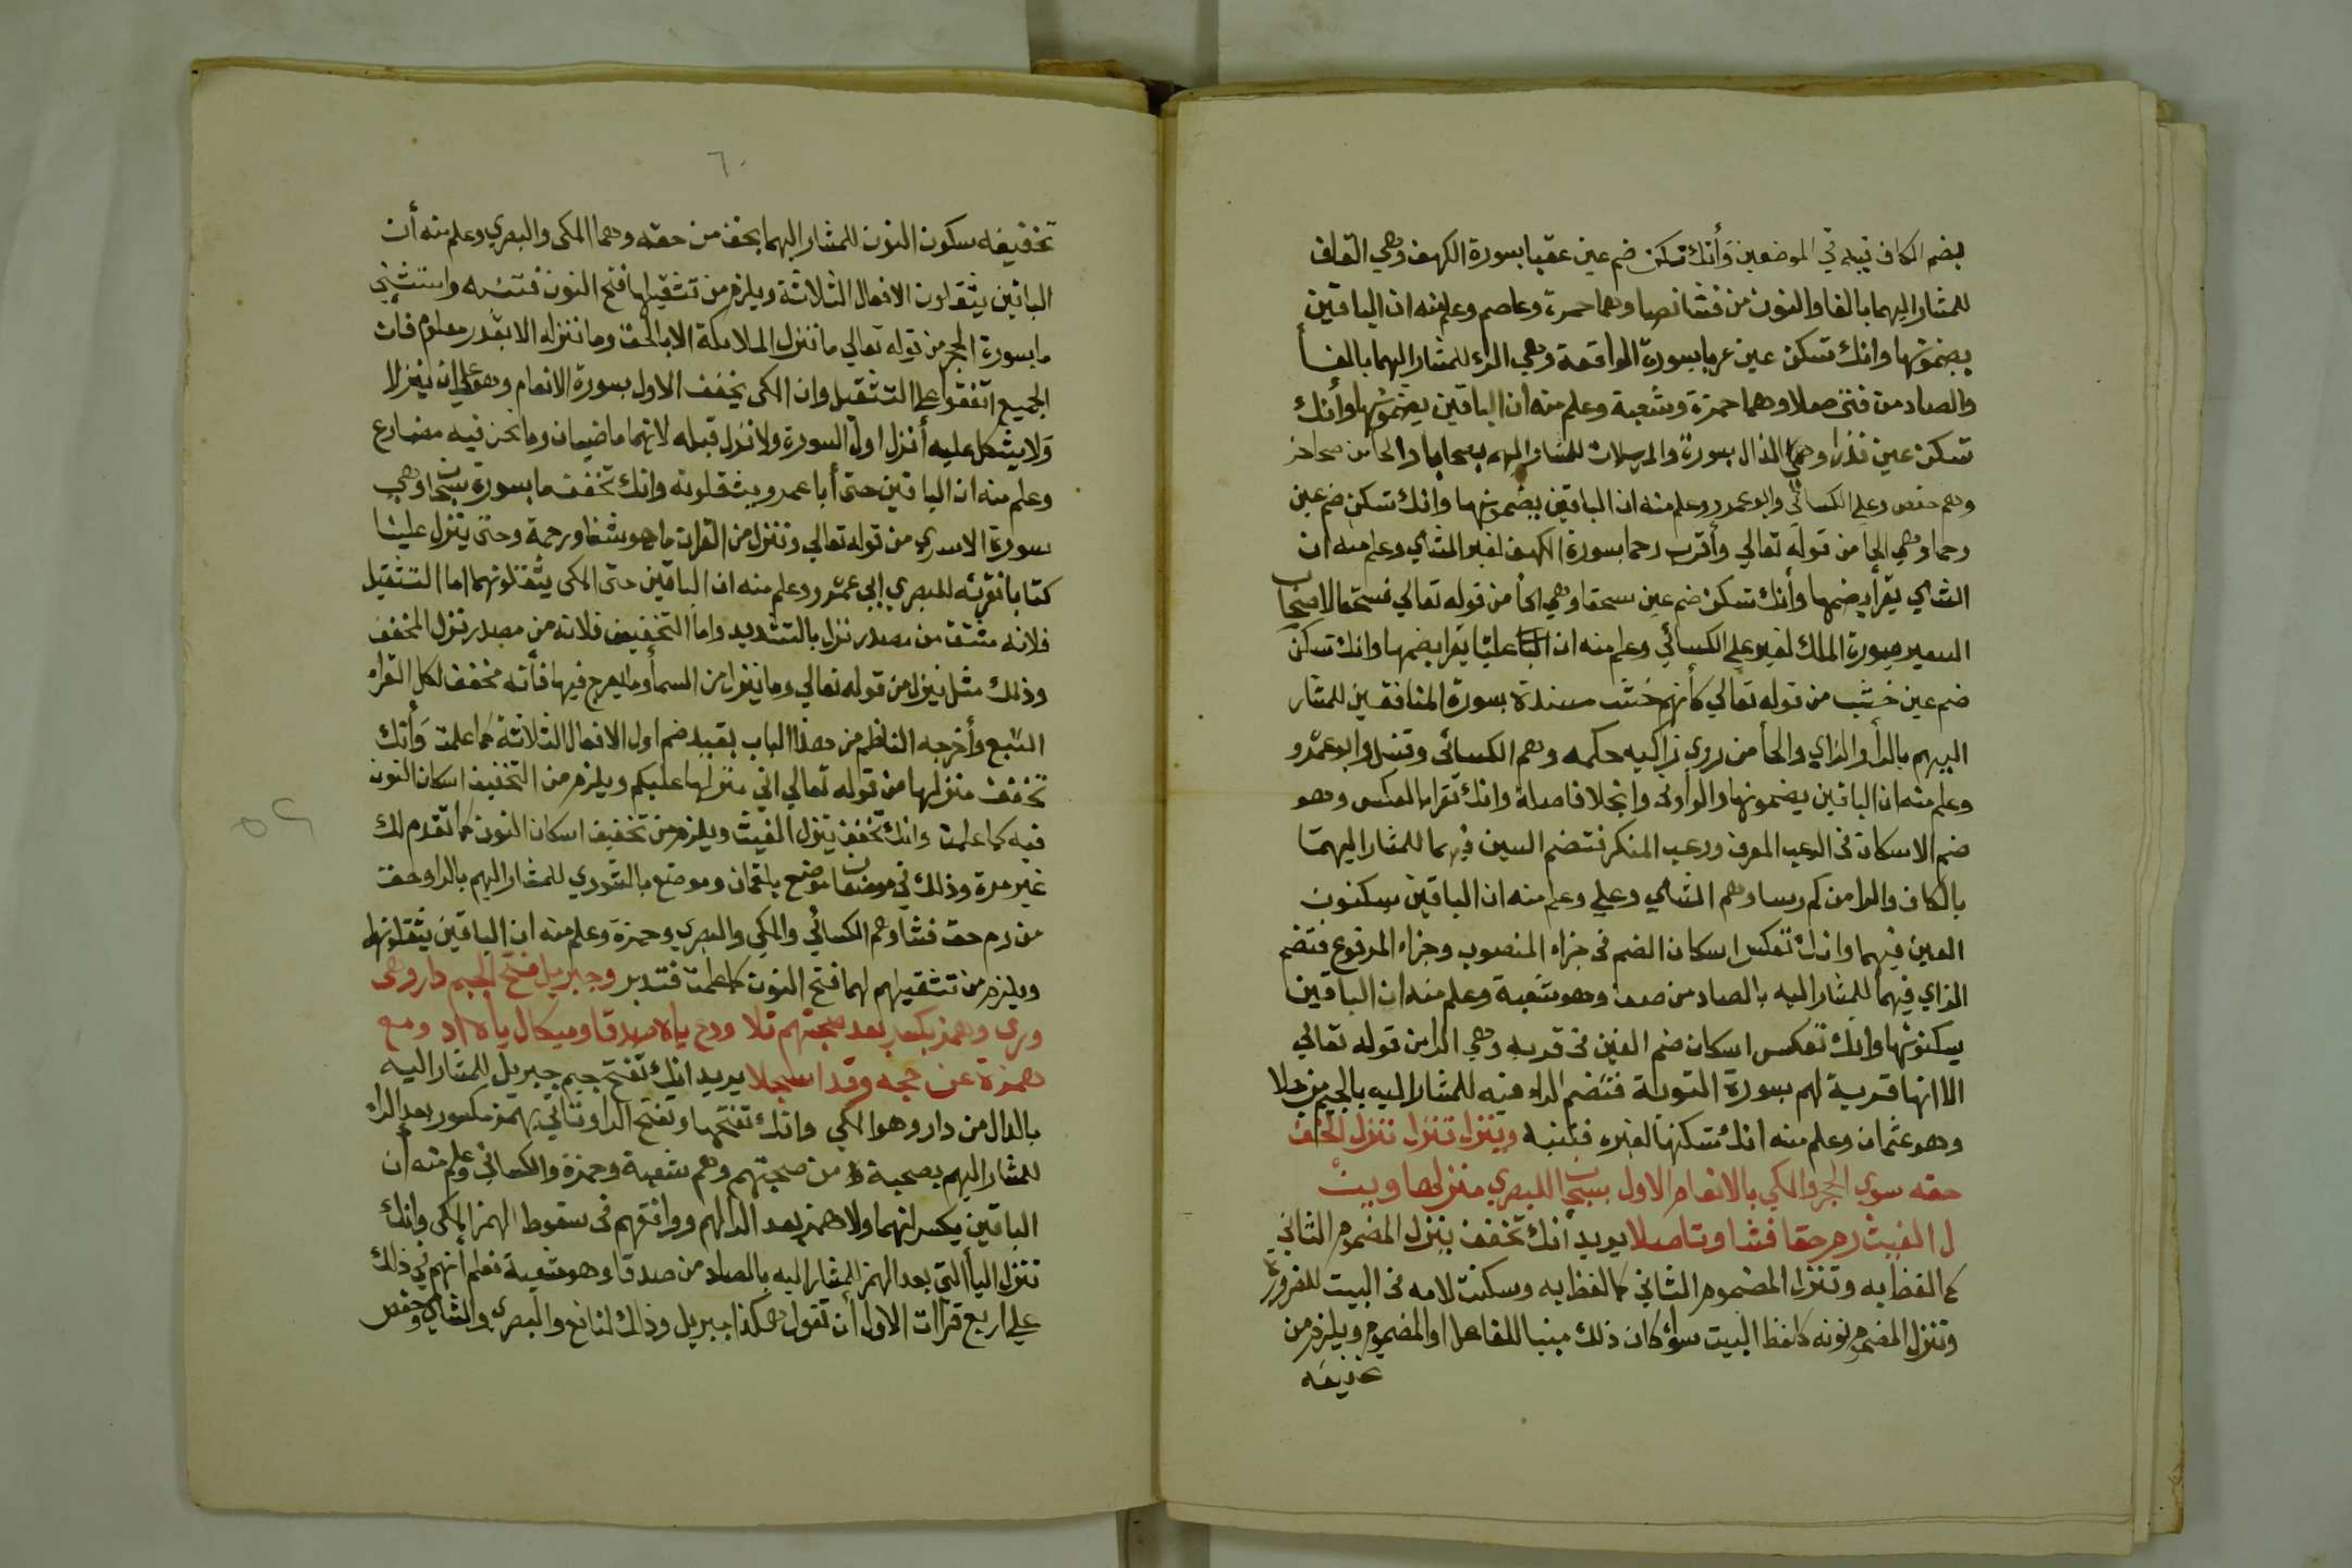 بضم الكاف فيه في الموضعين وأنك تسكن ضم عين عقبا بسورة الكهف وهي القاف
للمشار اليهما بالفا والنون من فشا نصا وهما حمزة وعاصم وعلم منه ان الباقين
يضمونها وانك تسكن عين عربا بسورة الواقعة وهي الراء للمشار اليهما بالفا
والصاد من فتى صلا وهما حمزة وشعبة وعلم منه ان الباقين يضمونها وأنك
تسكن عين نذرا وهي الذال بسورة والمرسلات للمشار اليهم بصحاب والحا من
وهم حفص وعلي الكسائي وابو عمرو وعلم منه ان الباقين يضمونها وأنك تسكن ضم عين
رحما وهي الحا من قوله تعالي وأقرب رحما بسورة الكهف لغير الشامي وعلم منه ان
الشامي يقرأ بضمها وأنك تسكن ضم عين سحقا وهي الحأ من قوله تعالي فسحقا لاصحاب
السعير بسورة الملك لغير علي الكسائي وعلم منه ان عليا يقرا بضمها وانك تسكن
ضم عين خشب من قوله تعالي كأنهم خشب مسندة بسورة المنافقين للمشار
اليهم بالرأ والزاي والحأ من روي زاكيه حكمه وهم الكسائي وقنبل وابو عمرو
وعلم منه ان الباقين يضمونها والواو في وانجلا فاصلة وانك تقرا بالعكس وهو
ضم الاسكان في الرعب المعرف ورعب المنكر فتضم العين فيهما للمشار اليهما
بالكاف والرا من كم رسا وهم الشامي وعلي وعلم منه ان الباقين يسكنون
العين فيهما وانك تعكس اسكان الضم في جزاء المنصوب وجزاء المرفوع فتضم
الزاي فيهما للمشار اليه بالصاد من صف وهو شعبة وعلم منه ان الباقين
يسكنونها وانك تعكس اسكان ضم العين في قربة وهي الرا من قوله تعالي
الا انها قربة لهم بسورة التوبة فتضم الراء فيه للمشار اليه بالجيم من جلا
وهو عثمان وعلم منه انك تسكنها لغيره فتنبه وينزل تنزل ننزل الخف
حقه سوي الحجر والمكي بالانعام الاول بسبحان للبصري منزلها وينـ
ـل الغيث رم حقا فشا وتاصلا يريد أنك تخفف ينزل المضموم الثاني
كما لفظ به وتنزل المضموم الثاني كما لفظ به وسكنت لامه في البيت للضرورة
وننزل المضموم نونه كلفظ البيت سوأ كان ذلك مبنيا للفاعل او للمضموم ويلزم من
تخفيفه
٦٠
تخفيفه سكون النون للمشار اليهما بحق من حقه وهما المكي والبصري وعلم منه أن
الباقين يثقلون الافعال الثلاثة ويلزم من تثقيلها فتح النون فتنبه واستثني
ما بسورة الحجر من قوله تعالي ما ننزل الملائكة الا بالحق وما ننزله الا بقدر معلوم فان
الجميع اتفقوا علي التثقيل وان المكي يخفف الاول بسورة الانعام وهو علي ان ينزل
ولا يشكل عليه أنزل اول السورة ولا نزل قبله لانهما ماضيان وما نحن فيه مضارع
وعلم منه ان الباقين حتى أبا عمرو يثقلونه وانك تخفف ما بسورة سبحان وهي
سورة الاسرى من قوله تعالي وننزل من القران ما هو شفا ورحمة وحتى تنزل علينا
كتابا نقرئه للبصري ابي عمرو وعلم منه ان الباقين حتى المكي يثقلونهما اما التثقيل
فلانه مشتق من مصدر نزل بالتشديد واما التخفيف فلانه من مصدر نزل المخفف
وذلك مثل ينزل من قوله تعالي وما ينزل من السمأ وما يعرج فيها فأنه مخفف لكل القراء
السبع وأخرجه الناظم من هذا الباب بقيد ضم اول الافعال الثلاثة كما علمت وأنك
تخفف منزلها من قوله تعالي اني منزلها عليكم ويلزم من التخفيف اسكان النون
فيه كما علمت وانك تخفف ينزل الغيث ويلزم من تخفيف اسكان النون كما تقدم لك
غير مرة وذلك في موضعان موضع بلقمان وموضع بالشوري للمشار اليهم بالرا وحق
من رم حق فشا وهم الكسائي والمكي والبصري وحمزة وعلم منه ان الباقين يثقلونها
ويلزم من تثقيلهم لهما فتح النون كما علمت فتدبر وجبريل فتح الجيم دار وهي
ورى وهمز بكسر بعد صحبتهم تلا ودع ياء صدقا وميكال ياءه اد ومع
همزة عن حجه وقد اسجلا يريد انك تفتح جيم جبريل للمشار اليه
بالدال من دار وهو المكي وانك تفتحها وتفتح الرا وتاتي بهمز مكسور بعد الراء
للمشار اليهم بصحبة من صحبتهم وهم شعبة وحمزة والكسائي وعلم منه أن
الباقين يكسرانهما ولا همز بعد الرا لهم ووافقهم في سقوط الهمز المكي وانك
تنزل اليأ التي بعد الهمز للمشار اليه بالصاد من صدقا وهو شعبة فعلم أنهم في ذلك
علي اربع قراات الاول أن تقول هكذا جبريل وذلك لنافع والبصري والشامي وحفص
٥٩